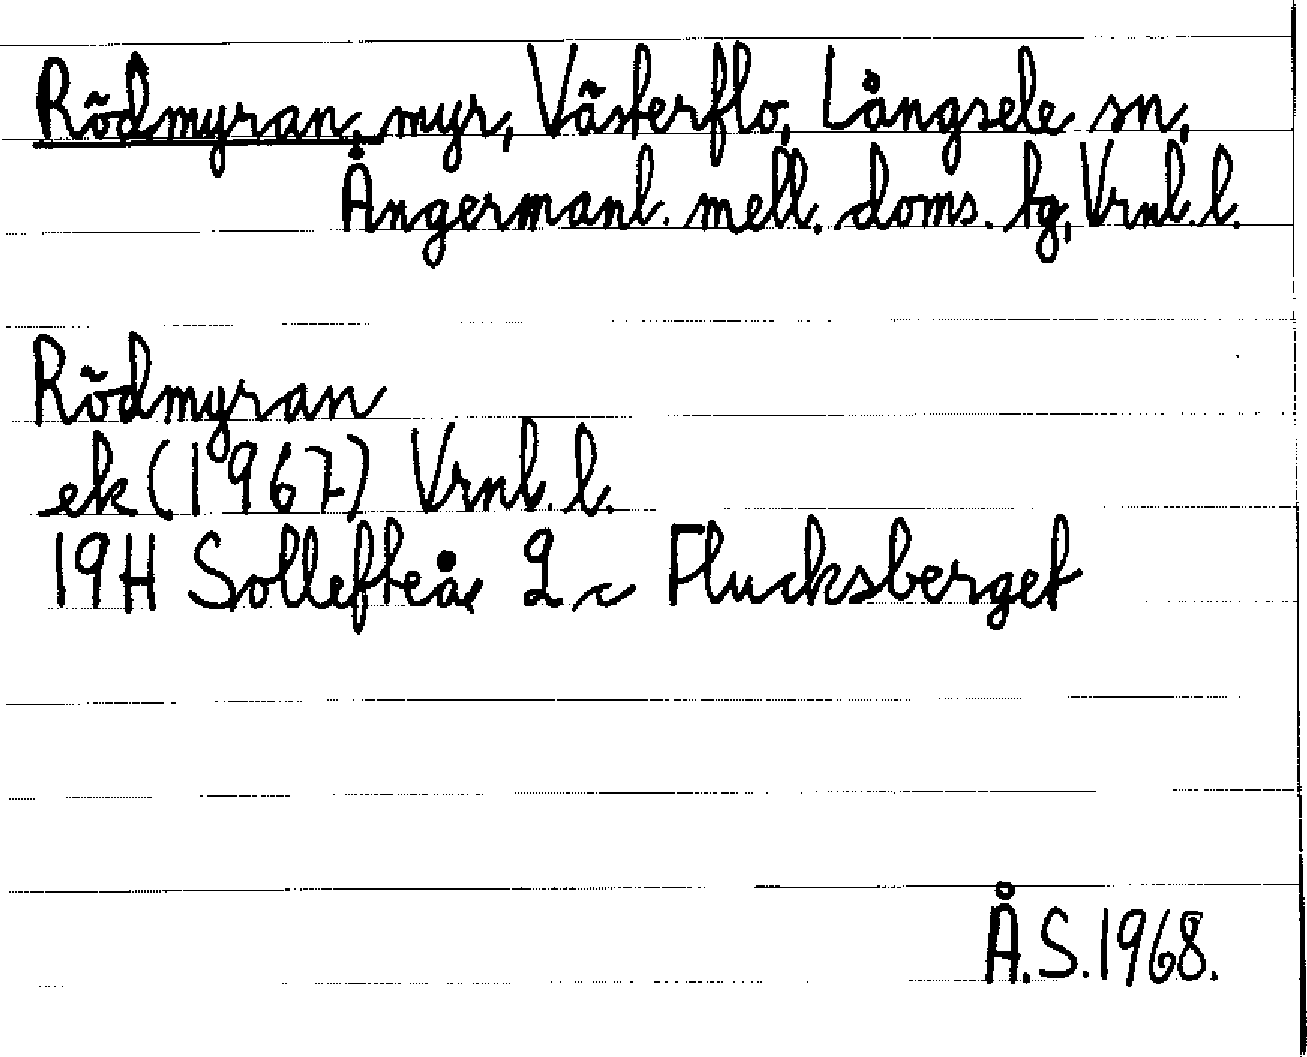 Rödmyran, myr, Västerflo, Långsele sn,
Ångermanl. mell. doms. tg, Vrnl. l.
Rödmyran
ek (1967) Vrnl. l.
19H Sollefteå 2 c Flucksberget
Å.S. 1968.